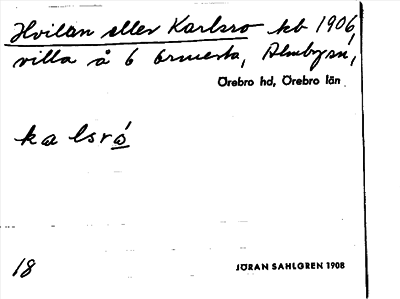 Hvilan eller Karlsro kb 1906,
villa å 6 Ormesta, Almbysn,
Örebro hd, Örebro län
kalsró
18
JÖRAN SAHLGREN 1908